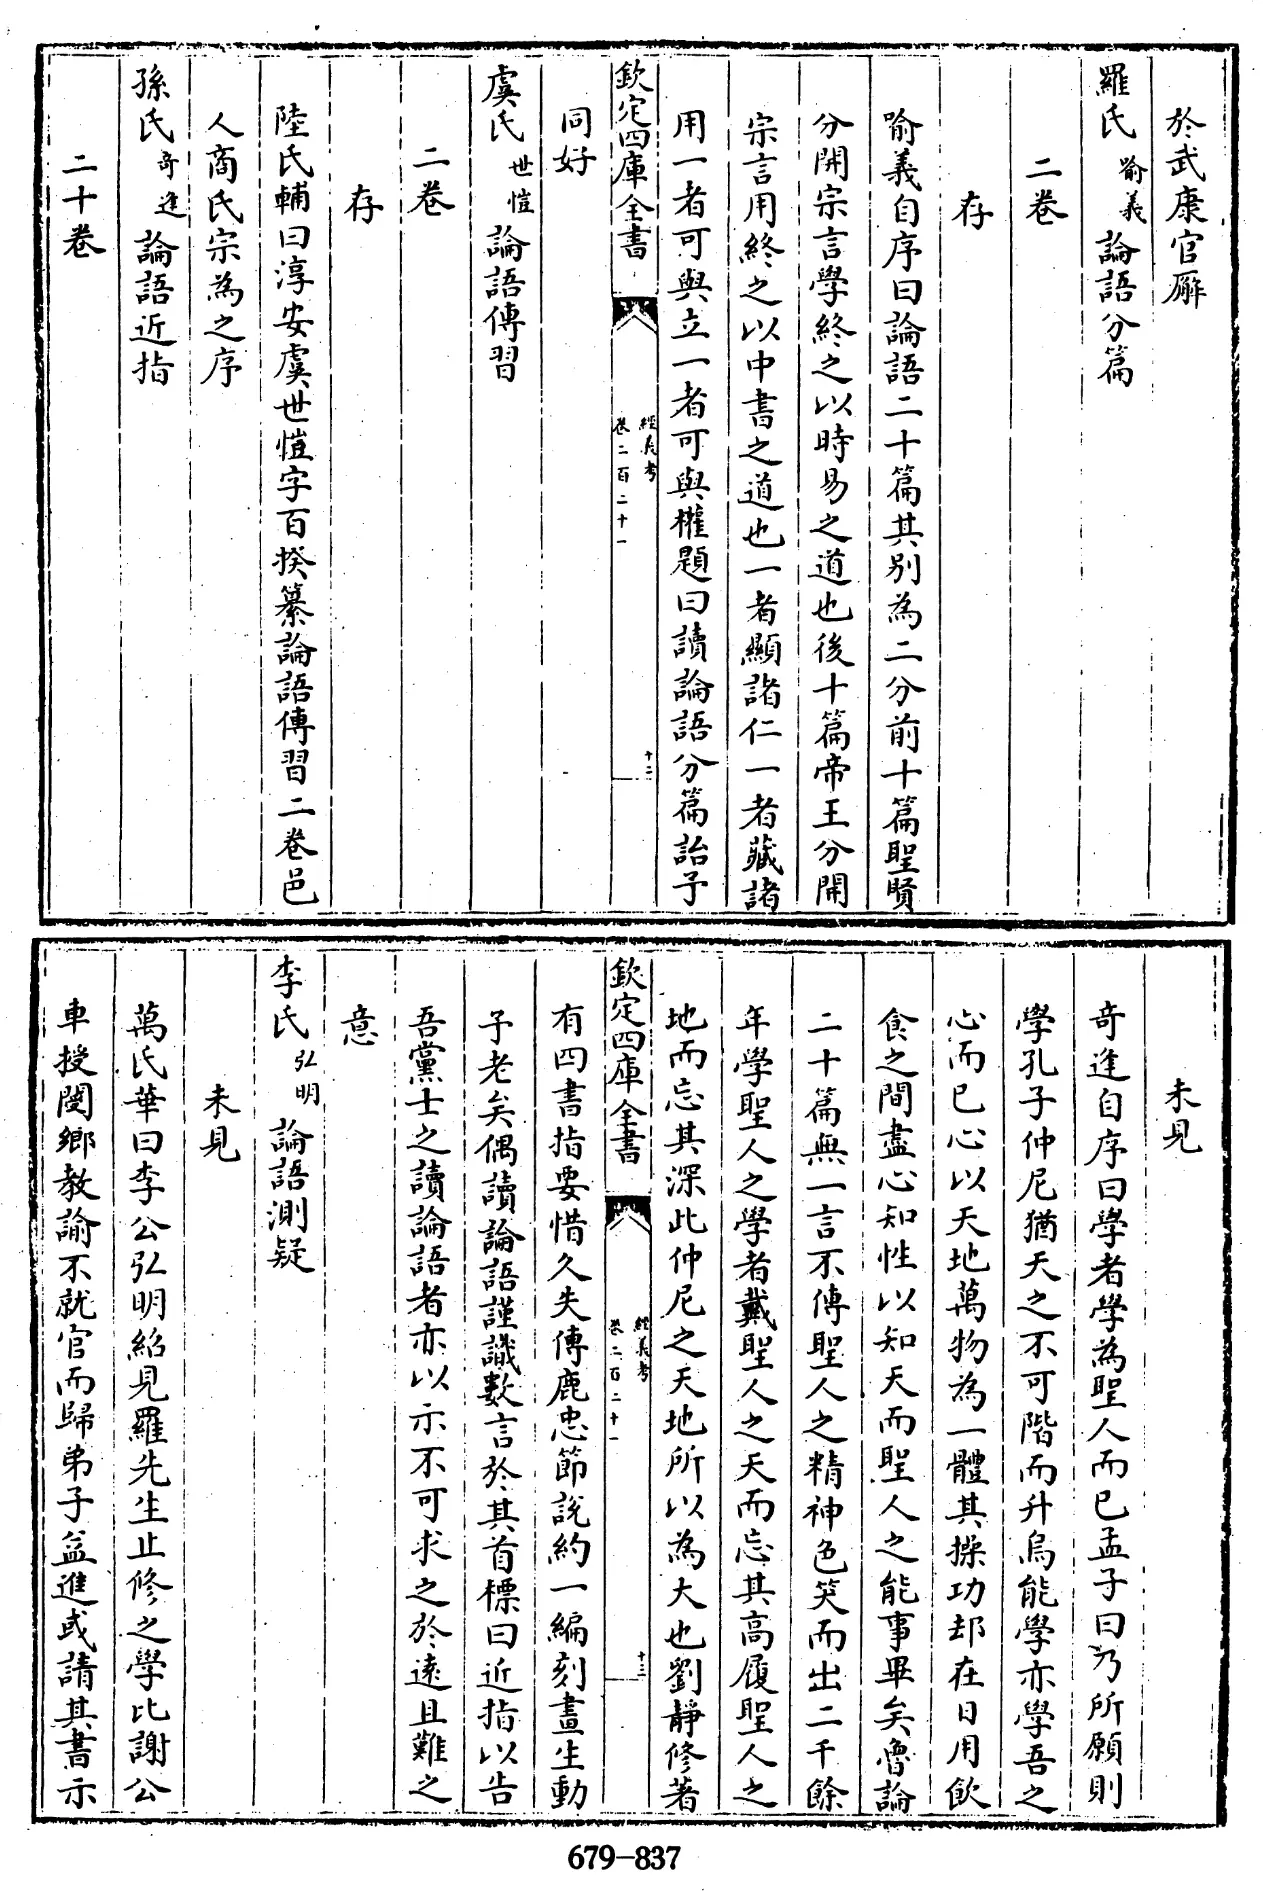 於武康官廨
羅氏喻義論語分篇
二卷
存
喻義自序曰論語二十篇其別為二分前十篇聖賢
分開宗言學終之以時易之道也後十篇帝王分開
宗言用終之以中書之道也一者顯諸仁一者藏諸
用一者可與立一者可與權題曰讀論語分篇詒予
欽定四庫全書
經義考
卷二百二十一
十二
同好
虞氏世愷論語傳習
二卷
存
陸氏輔曰淳安虞世愷字百揆纂論語傳習二卷邑
人商氏宗為之序
孫氏奇逢論語近指
二十卷
未見
奇逢自序曰學者學為聖人而已孟子曰乃所願則
學孔子仲尼猶天之不可階而升烏能學亦學吾之
心而已心以天地萬物為一體其操功却在日用飲
食之間盡心知性以知天而聖人之能事畢矣魯論
二十篇無一言不傳聖人之精神色笑而出二千餘
年學聖人之學者戴聖人之天而忘其高履聖人之
地而忘其深此仲尼之天地所以為大也劉靜修著
欽定四庫全書
經義考
卷二百二十一
十三
有四書指要惜久失傳鹿忠節說約一編刻畫生動
予老矣偶讀論語謹識數言於其首標曰近指以告
吾黨士之讀論語者亦以示不可求之於遠且難之
意
李氏弘明論語測疑
未見
萬氏華曰李公弘明紹見羅先生止修之學比謝公
車授閿鄉教諭不就官而歸弟子益進或請其書示
679-837